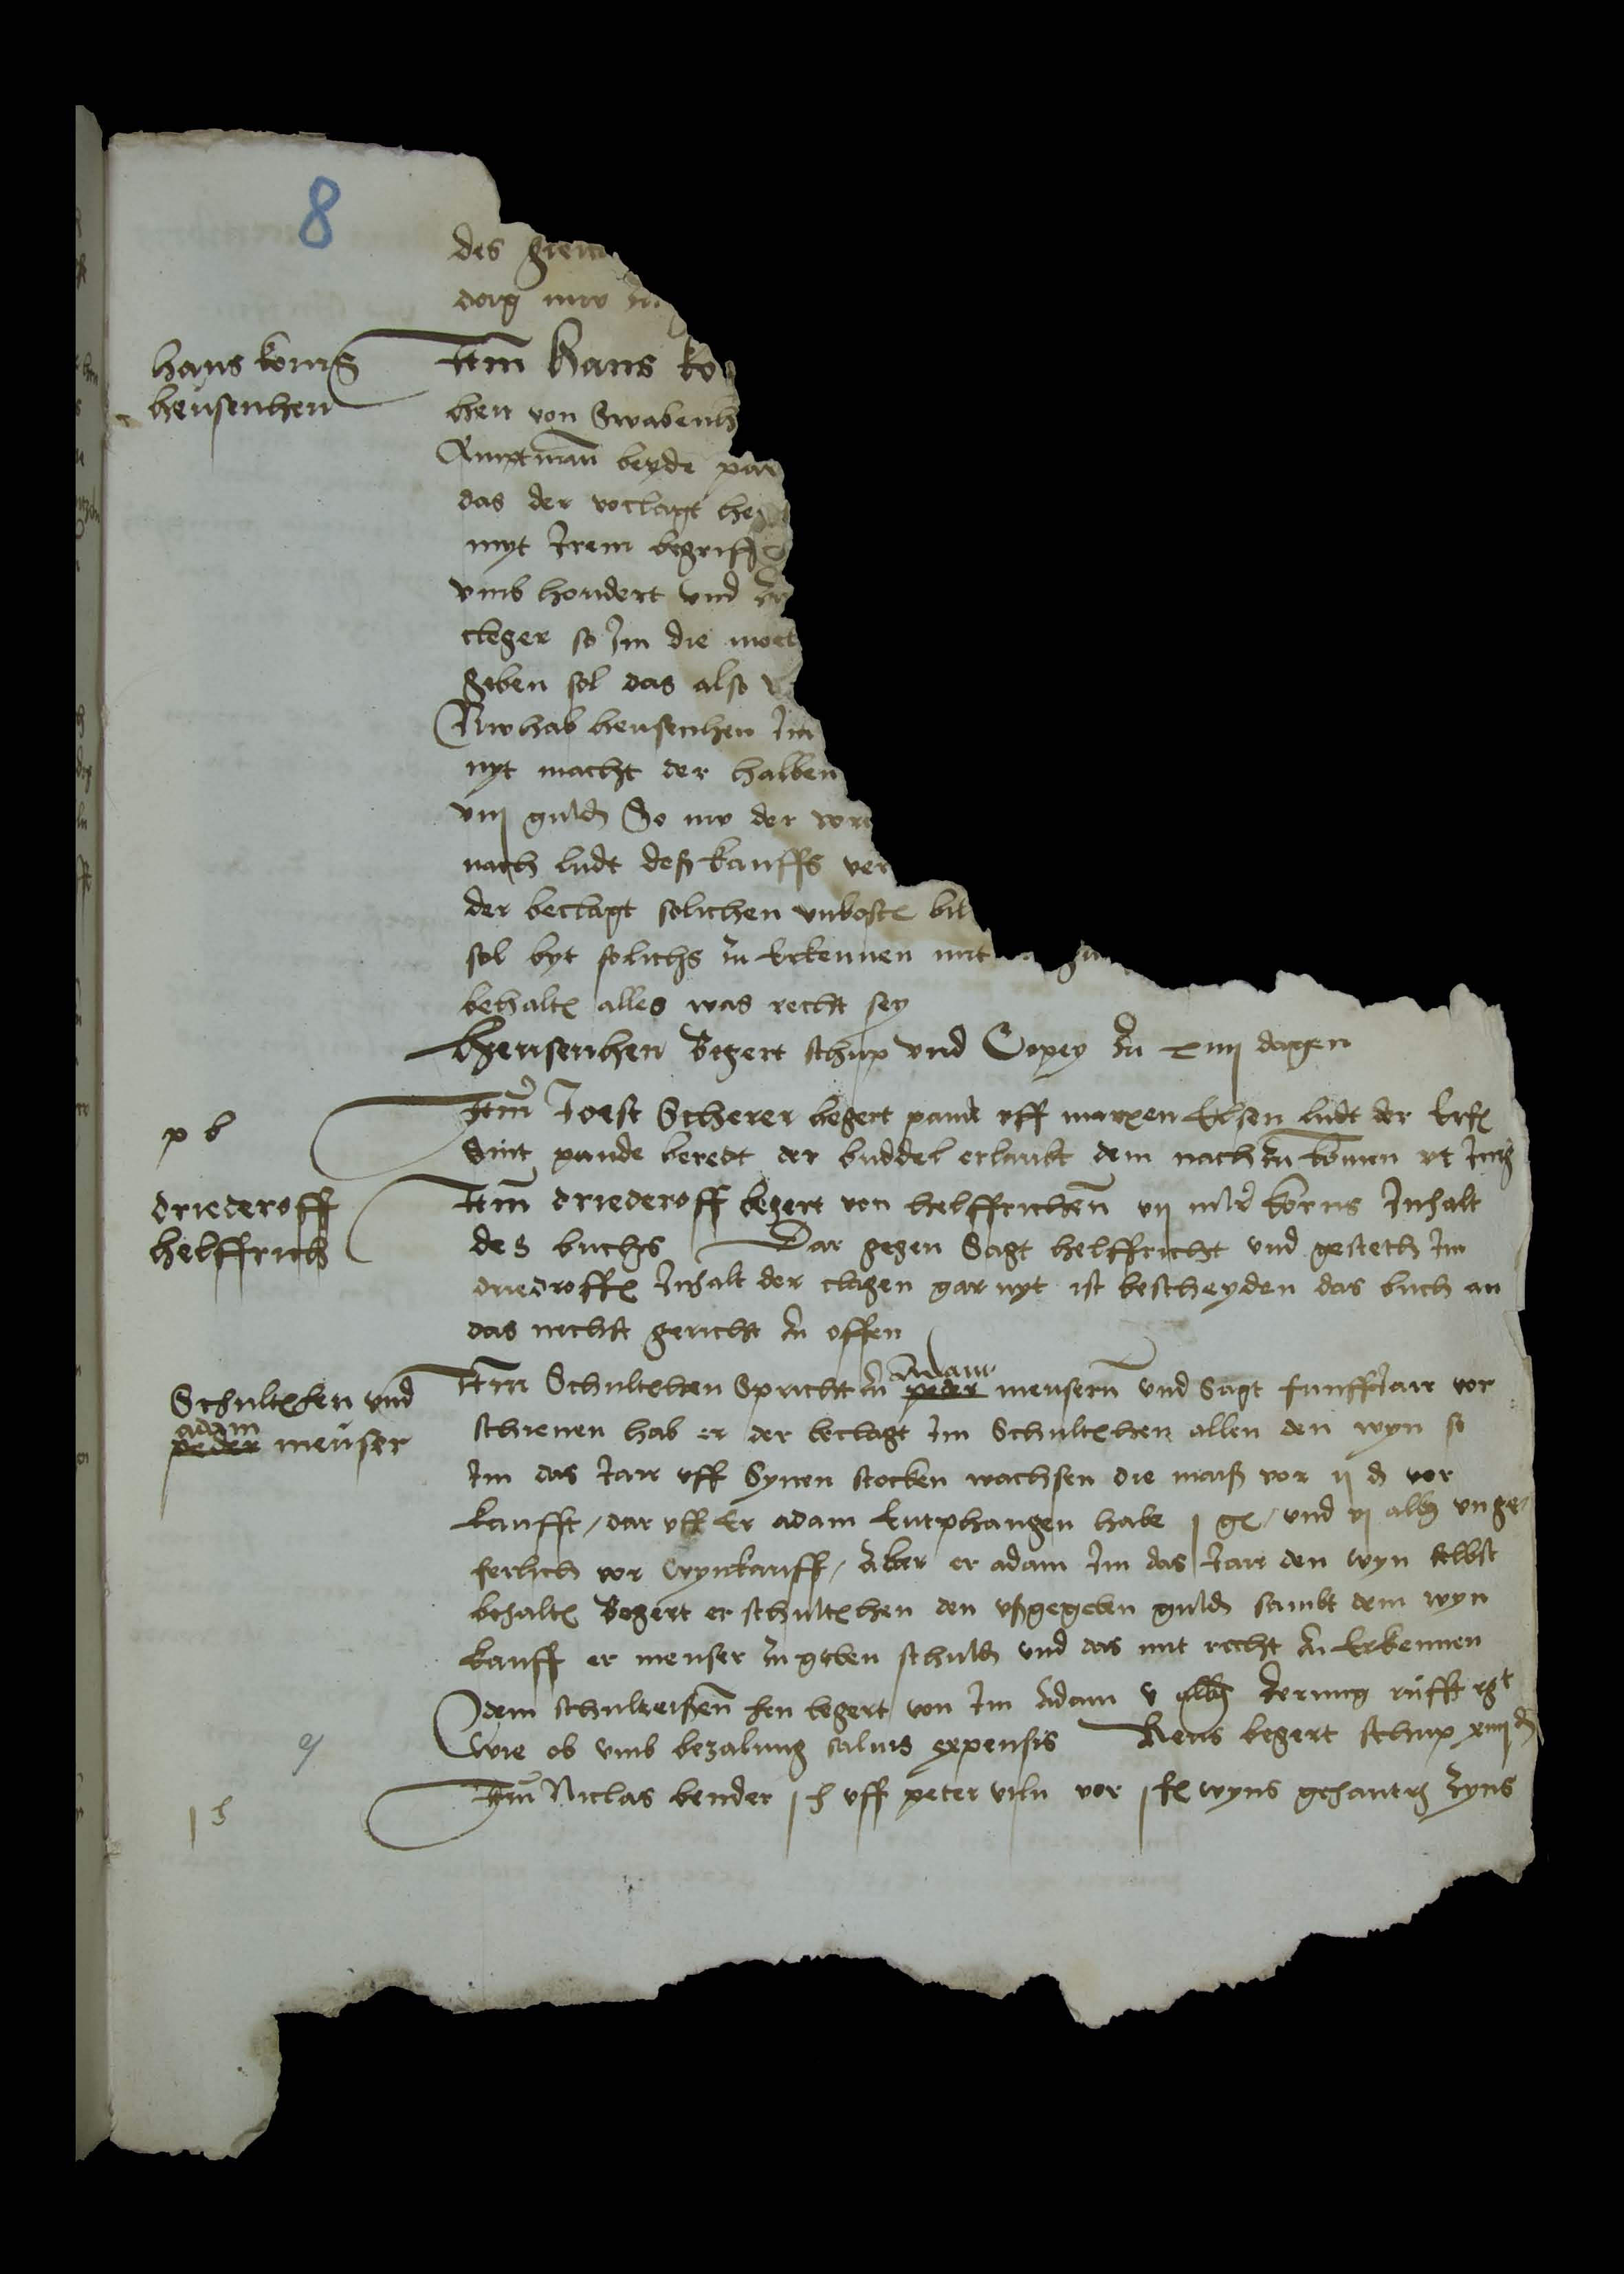 8
des
dorg nuw zu
hans konig
heusenhen
Item Hans ko
hen von Swabenh
Amptman beyde par
das der voclagt he
myt Irem begriff
vmb hondert vnd
cleger so Im die
geben sol das also
Nw hab heusenhen Im
nyt macht der halben
viij guld So nw der
nach ludt deß kauffs ver
der beclagt solichen vnkosten bil
sol byt solichs zu Erkennen mit
behalten alles was recht sey
Heusenhen Begert schup vnd Copey zu xiiij dagen
p b
Item Joest Scherer begert pande vff marxen Elsen ludt der Erfen
Sint pande beredt der buddel erlaubt dem nach zu komen vt Juris
driederoff
helffrich
Item driederoff begert von helffrichen vij mlr korns Inhalt
des buchs Dar gegen Sagt helffricht vnd gesteth Im
driedroffen Inhalt der clagen gar nyt ist bescheyden das buch an
das nechst gericht zu offen
Schultesen vnd
adam
peder meuser
Item Schulteshen Spricht zu Adam peder meusern vnd Sagt funff Jare vor
schienen hab er der beclagt Im Schulteshen allen den wyn so
Im das Jare vff Synen stocken wachsen die maiß vor ij d vor
kaufft / dar vff Er adam Entphangen habe j gl / vnd vj alb vnge
ferlich vor wynkauff / Aber er adam Im das Jare den wyn selbst
behalten Begert er schulteshen den vßgegeben guld sambt dem wyn
kauff er meuser zu geben schuld vnd das mit recht zu Erkennen
dem schulteißen hen begert von Im Adam v alb zerung
wie ob vmb bezalung saluis expensis Reus begert schup xiiij d
j h
Item Niclas bender j h vff peter viln vor j fl wyns gehantrg zyns